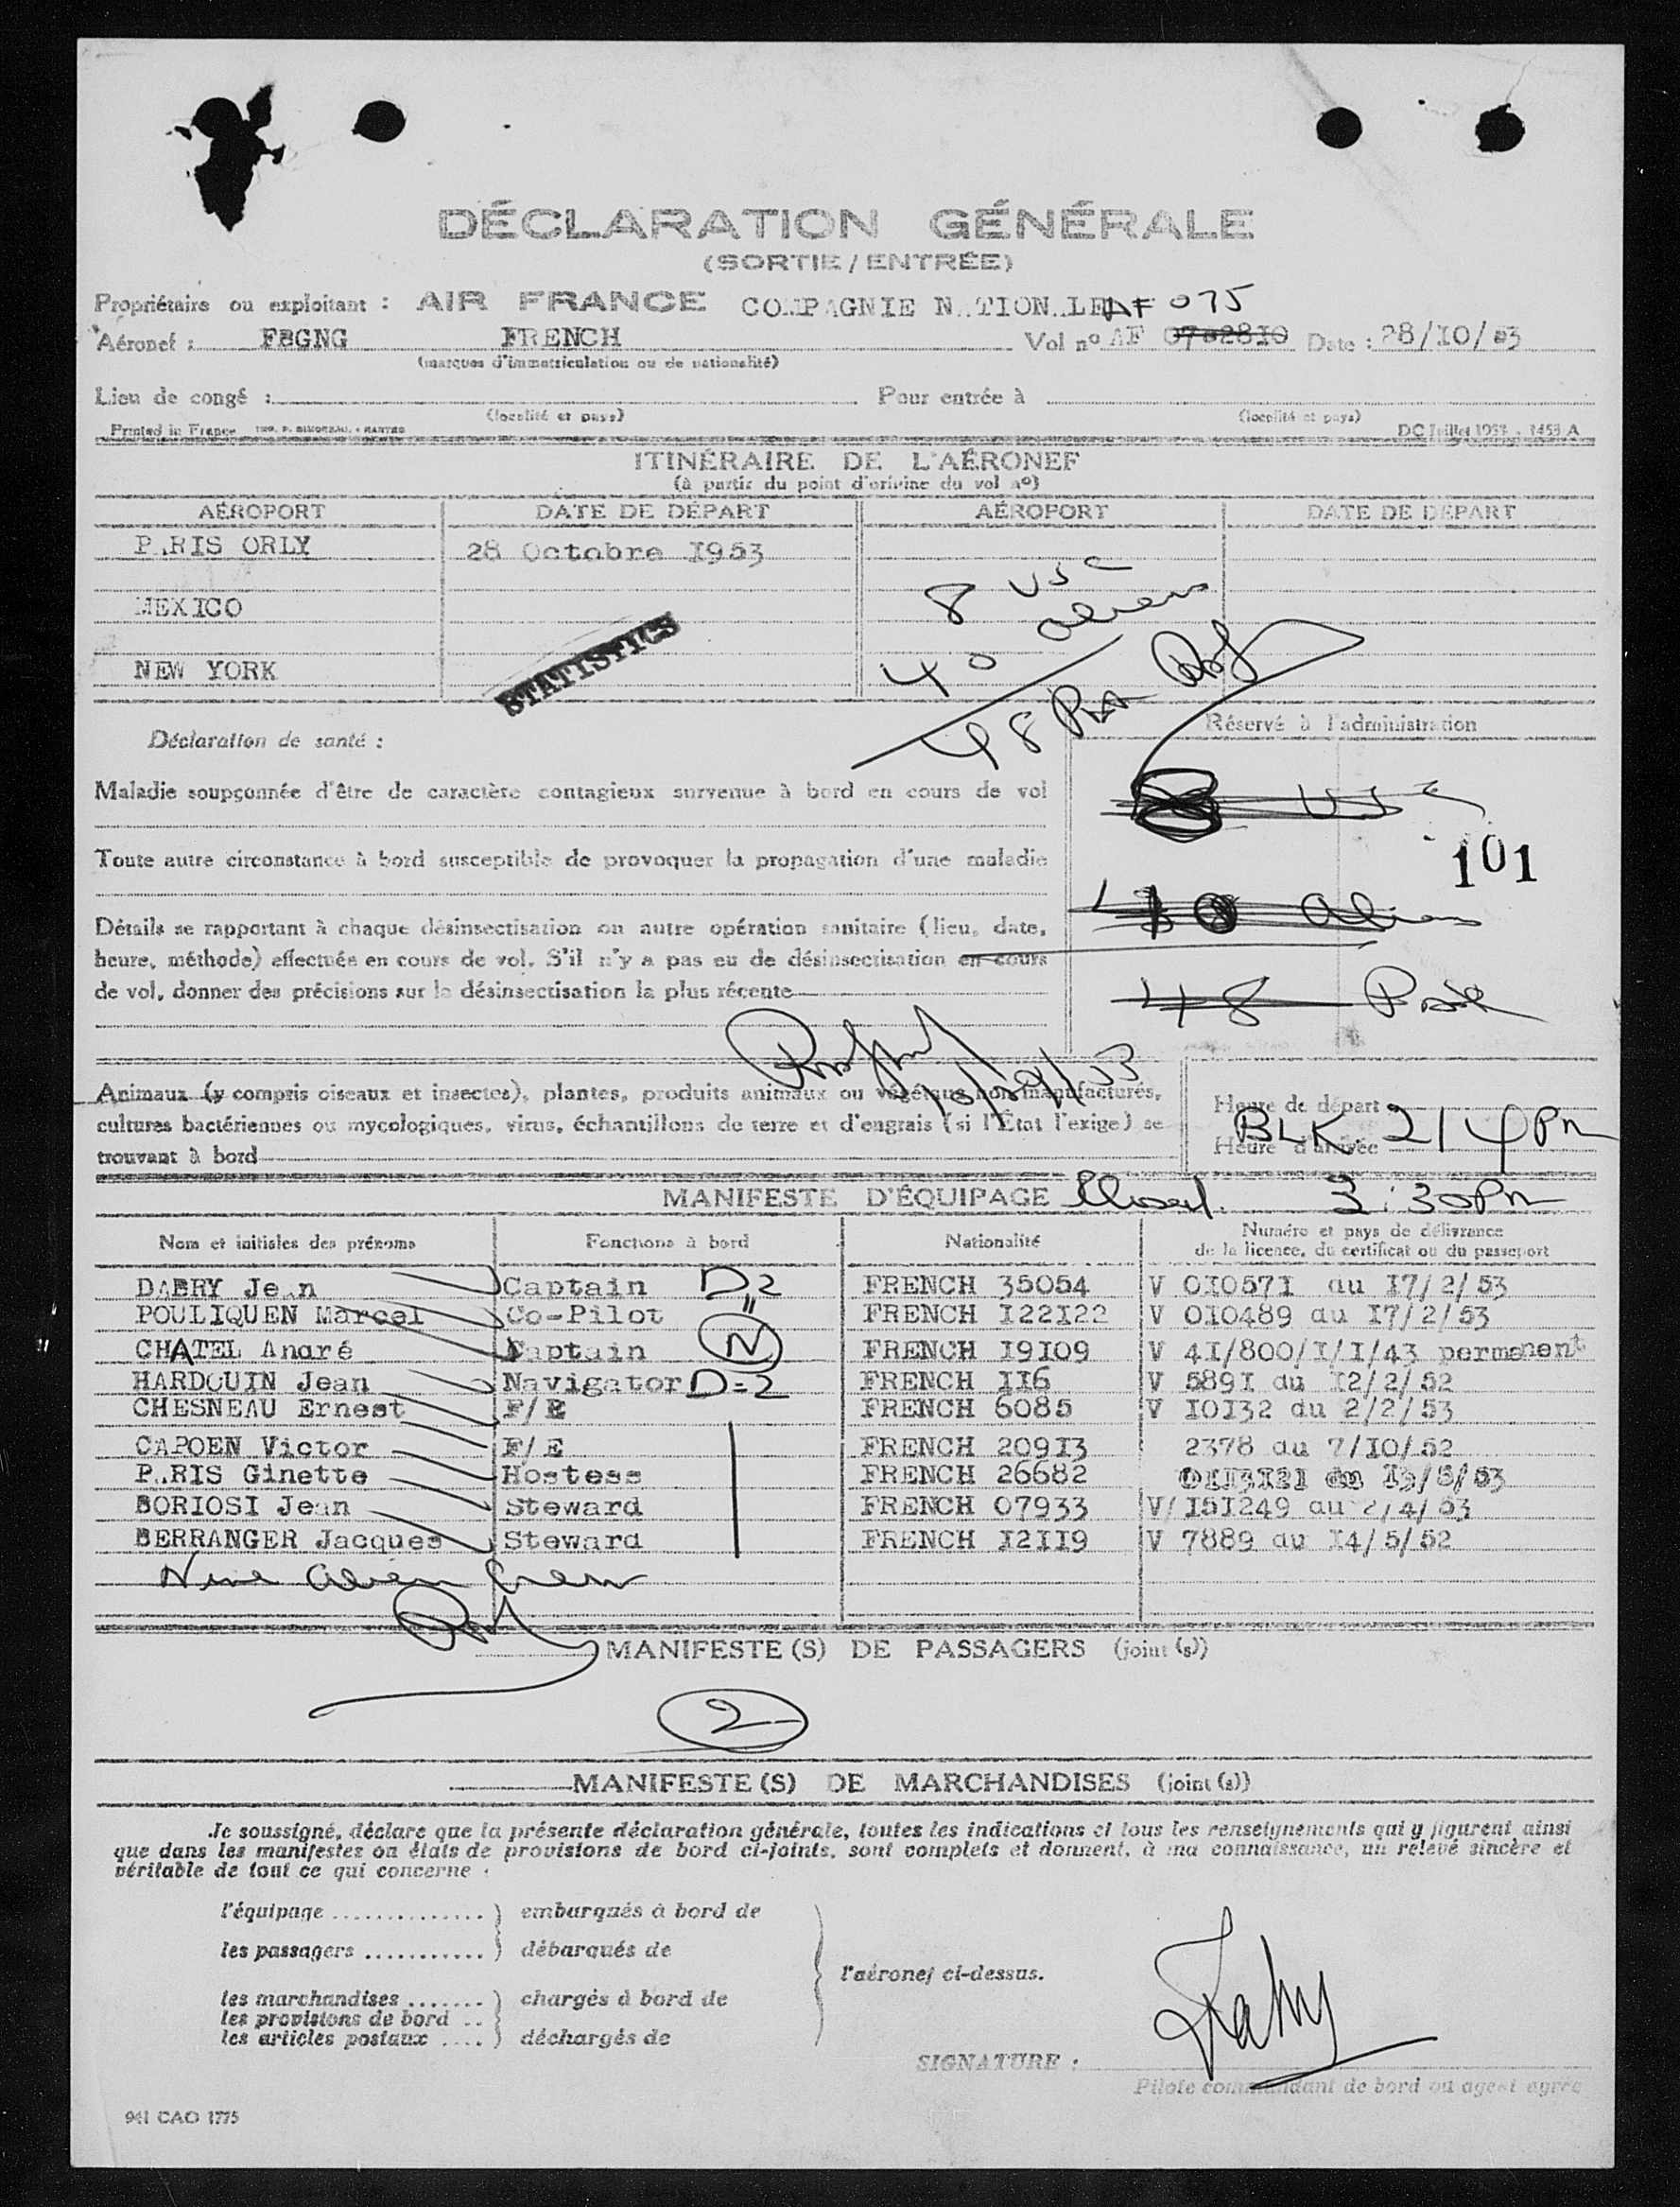 DÉCLARATION GÉNÉRALE
(SORTIE / ENTRÉE)
Propriétaire ou exploitant : AIR FRANCE COMPAGNIE N TION LE AF 075
Aéronef : FBGNG FRENCH Vol nº AF Date : 28/10/53
(marques d'immatriculation ou de nationalité)
Lieu de congé : Pour entrée à
(localité et pays) (localité et pays)
Printed in France DC Juillet 1953 - 1453 A
ITINÉRAIRE DE L'AÉRONEF
(à partir du point d'origine du vol nº)
AÉROPORT DATE DE DÉPART AÉROPORT DATE DE DÉPART
P RIS ORLY 28 Octobre I953
8 USC
MEXICO
40 aliens
NEW YORK
STATISTICS
48 Pax
Réservé à l'administration
Déclaration de santé :
Maladie soupçonnée d'être de caractère contagieux survenue à bord en cours de vol
8 USC
101
Toute autre circonstance à bord susceptible de provoquer la propagation d'une maladie
Aliens
Détails se rapportant à chaque désinsectisation ou autre opération sanitaire (lieu, date,
heure, méthode) effectués en cours de vol. S'il n'y a pas eu de désinsectisation en cours
de vol, donner des précisions sur la désinsectisation la plus récente
48
Animaux (y compris oiseaux et insectes), plantes, produits animaux ou végétaux non manufacturés,
cultures bactériennes ou mycologiques, virus, échantillons de terre et d'engrais (si l'État l'exige) se
trouvant à bord
Heure de départ
BLK 214 PM
Heure d'arrivée
MANIFESTE D'ÉQUIPAGE Closed. 3:30 PM
Nom et initiales des prénoms Fonctions à bord Nationalité Numéro et pays de délivrance
de la licence, du certificat ou du passeport
DABRY Je n Captain D=2 FRENCH 35054 V 0I057I du I7/2/53
POULIQUEN Marcel Co-Pilot " FRENCH I22I22 V 0I0489 du I7/2/53
CHATEL André Captain N FRENCH I9I09 V 4I/800/I/I/43 permanent
HARDOUIN Jean Navigator D=2 FRENCH II6 V 589I du I2/2/52
CHESNEAU Ernest F/E FRENCH 6085 V I0I32 du 2/2/53
CAPOEN Victor F/E FRENCH 209I3 2378 du 7/I0/52
P RIS Ginette Hostess FRENCH 26682
BORIOSI Jean Steward FRENCH 07933 V/ I5I249 du 2/4/53
BERRANGER Jacques Steward FRENCH I2II9 V 7889 du I4/5/52
Nine Alien Crew
MANIFESTE (S) DE PASSAGERS (joint (s))
2
MANIFESTE (S) DE MARCHANDISES (joint (s))
Je soussigné, déclare que la présente déclaration générale, toutes les indications et tous les renseignements qui y figurent ainsi
que dans les manifestes ou états de provisions de bord ci-joints, sont complets et donnent, à ma connaissance, un relevé sincère et
véritable de tout ce qui concerne :
l'équipage .............. ) embarqués à bord de
les passagers ........... ) débarqués de
l'aéronef ci-dessus.
les marchandises ....... ) chargés à bord de
les provisions de bord ..
les articles postaux .... ) déchargés de
SIGNATURE :
Pilote commandant de bord ou agent agréé
941 CAO 1775